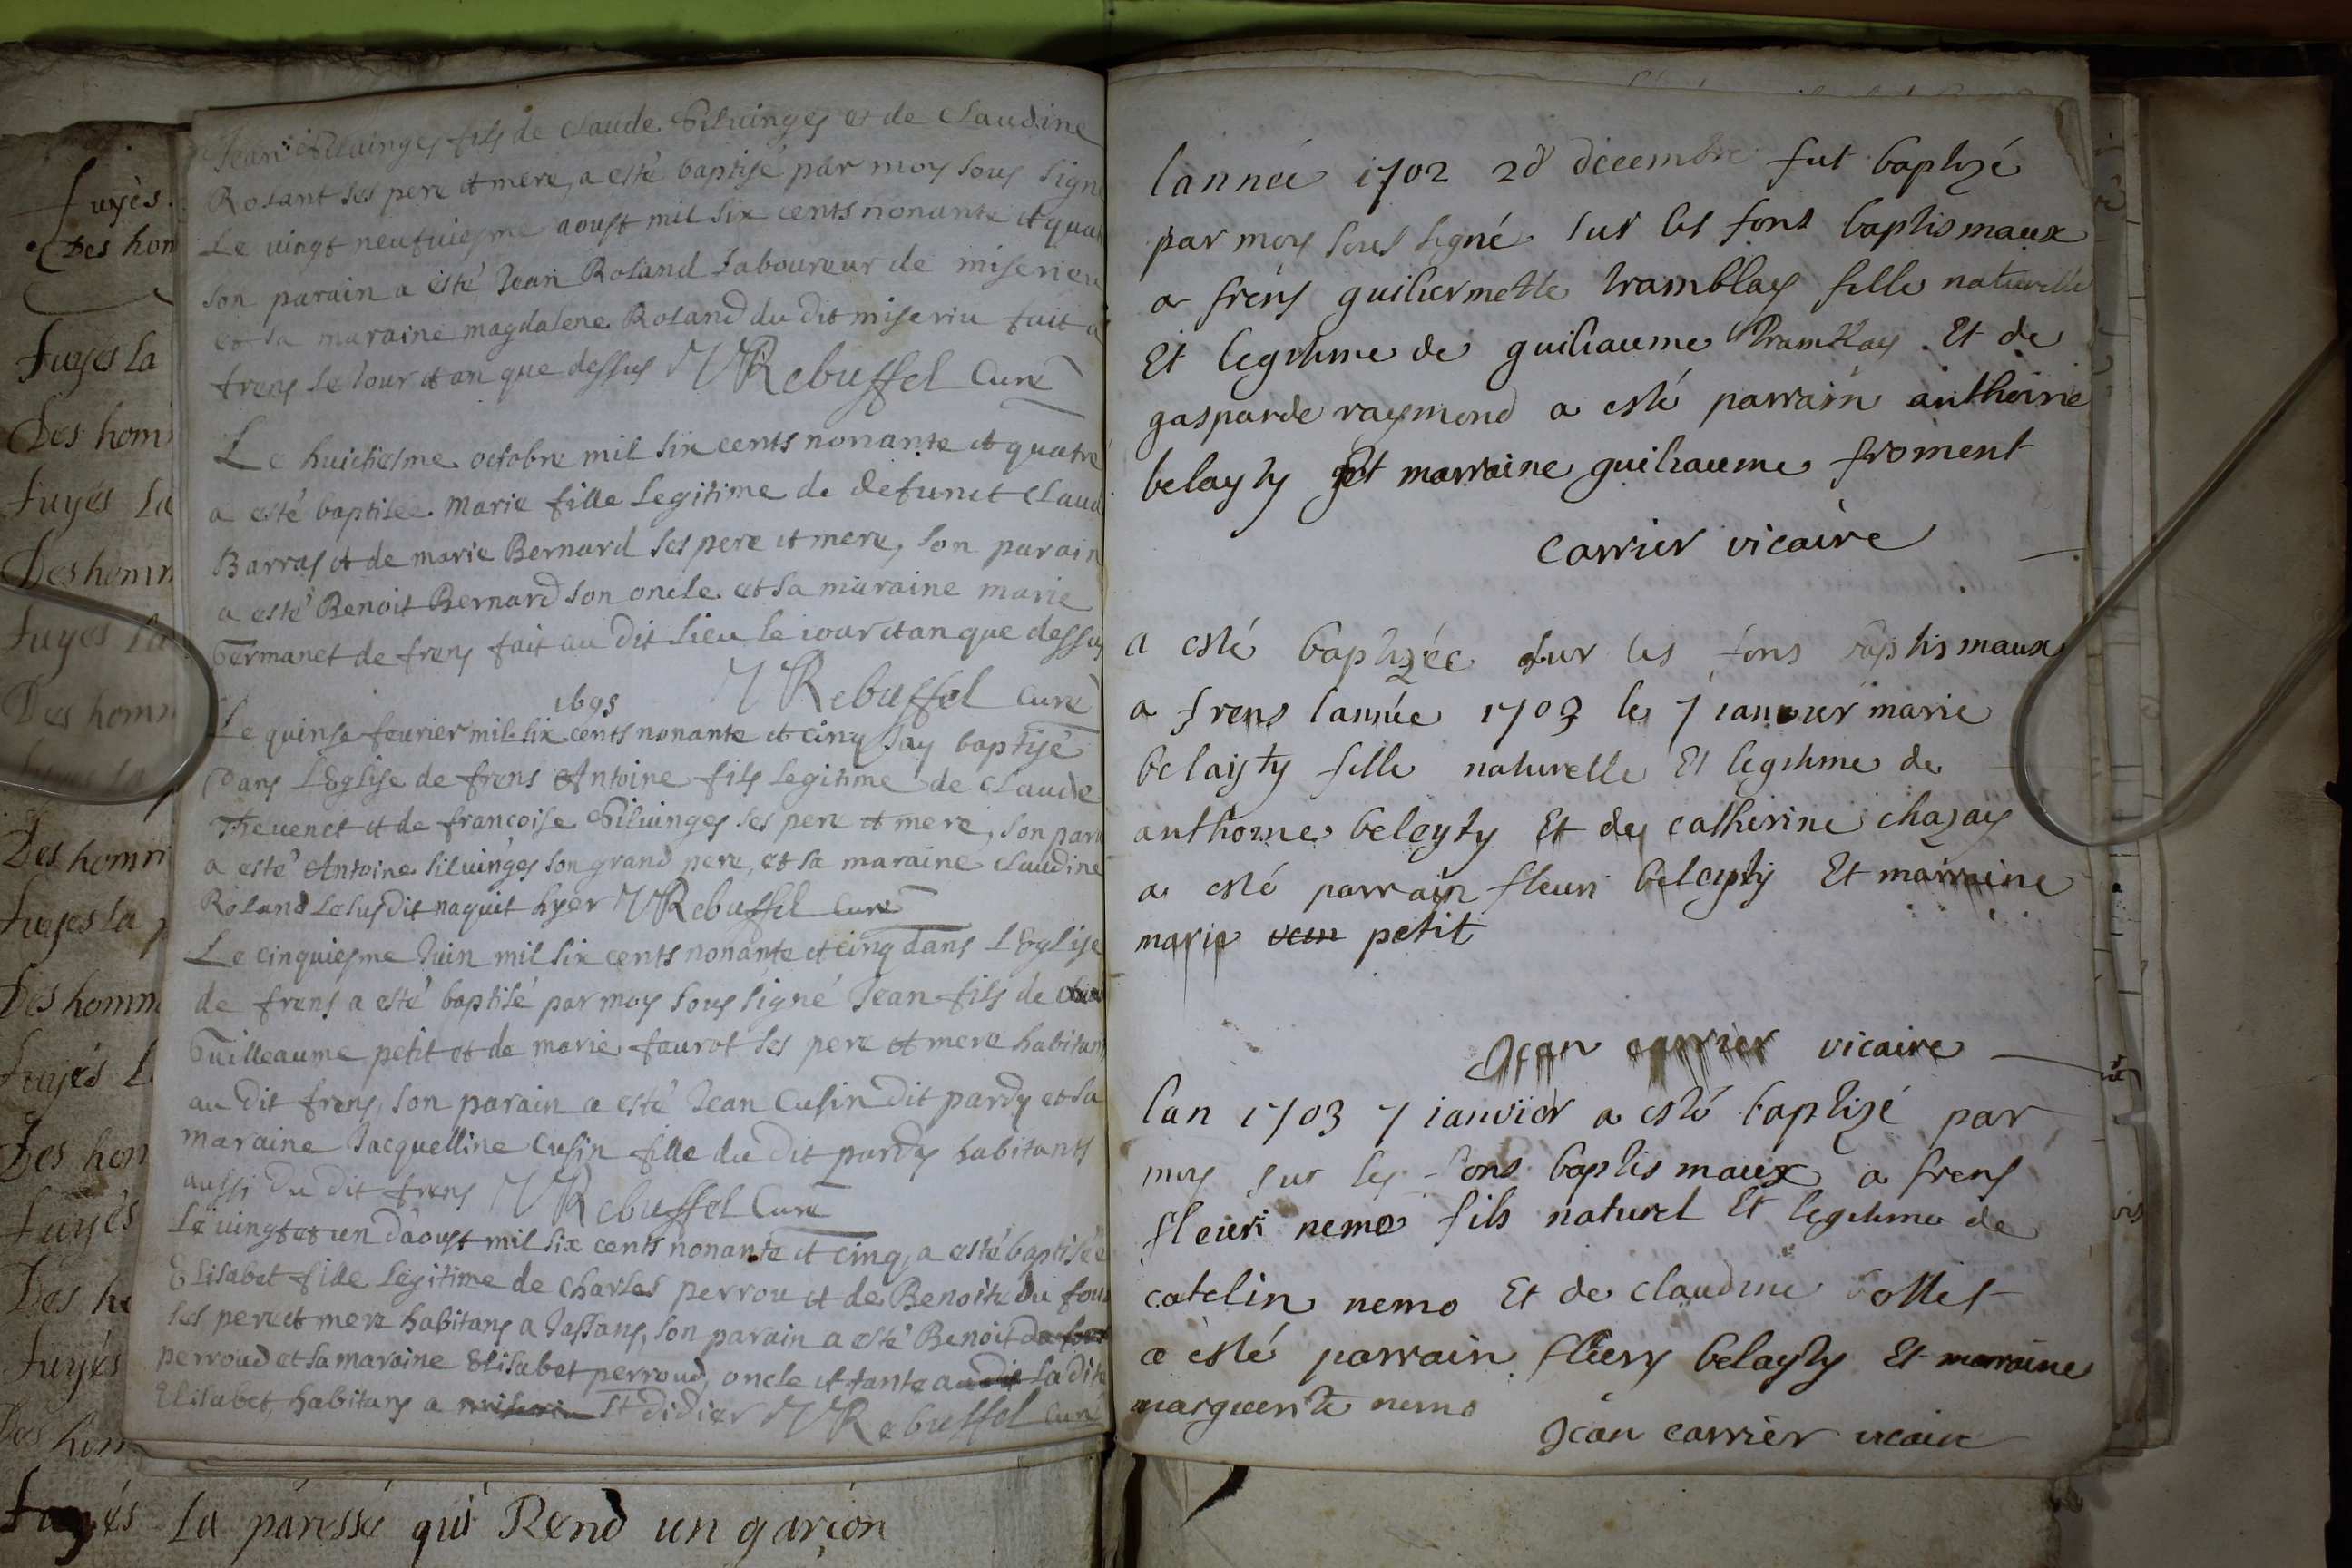 fuyès
Des hom
fuyés la
Des hom
fuyés la
Des homm
fuyés la
Des homm
Des homm
fuyes la
Des homm
fuyés l
Des hom
fuyés
Des ho
fuyés
Des hom
fuyés la paressé qui Rend un garçon
Jean Siluinges fils de Claude Siluinges et de Claudine
Rolant ses pere et mere, a esté baptisé par moy sous signé
Le vingt neufuiesme aoust mil six cents nonante et quat
son parain a esté Jean Roland Laboureur de miserieu
et sa maraine magdalene Roland du dit miseriu fait a
frens Le Jour et an que dessus Rebuffel Curé
Le huictiesme octobre mil six cents nonante et quatre
a esté baptisée marie fille Legitime de defunct Claud
Barras et de marie Bernard ses pere et mere, son parain
a esté Benoit Bernard son oncle et sa maraine marie
Germanet de frens fait au dit Lieu le iour et an que dessus
Rebuffel Curé
1695
Le quinse feurier mil six cents nonante et cinq Jay baptisé
Dans L'Eglise de frens Antoine fils legitime de Claude
Theuenet et de francoise Siluinges ses pere et mere, son para
a esté Antoine Siluinges son grand pere, et sa maraine Claudine
Roland Le susdit naquit hyer Rebuffel Curé
Le cinquiesme Juin mil six cents nonante et cinq dans L'Eglise
de frens a esté baptisé par moy sous signé Jean fils de
Guilleaume petit et de marie faurot ses pere et mere habitans
au dit frens, son parain a esté Jean Cusin dit pardy et sa
maraine Jacquelline Cusin fille du dit pardy habitants
aussi du dit frens Rebuffel Curé
Le uingt et un d'aoust mil six cents nonante et cinq, a esté baptisée
Elisabet fille legitime de Charles perrou et de Benoite Du four
ses pere et mere habitans a Jassans, son parain a esté Benoit
perroud et sa maraine Elisabet perroud, oncle et tante audit La dite
Elisabet, habitans a miseriu St didier Rebuffel Curé
lannéé 1702 28 decembre fut baptizé
par moy sous signé sur les fons baptismaux
a frens guiliermette tramblay fille naturelle
Et legitime de guiliaume tramblay Et de
gasparde raymond a esté parrain anthoine
belayty Et marraine guiliaume froment
Carrier vicaire
a esté baptizéé sur les fons baptismaux
a frens lannée 1703 le 7 ianvier marie
belaisty fille naturelle Et legitime de
anthoine belayty Et de catherine chazay
a esté parrain fleuri belayty Et marraine
marie petit
Jean carrier vicaire
lan 1703 7 ianvier a esté baptizé par
moy sur les fons baptismaux a frens
fleuri nemo fils naturel Et legitime de
catelin nemo Et de claudine
a esté parrain fleury belayty Et marraine
marguerite nemo
Jean carrier vicaire